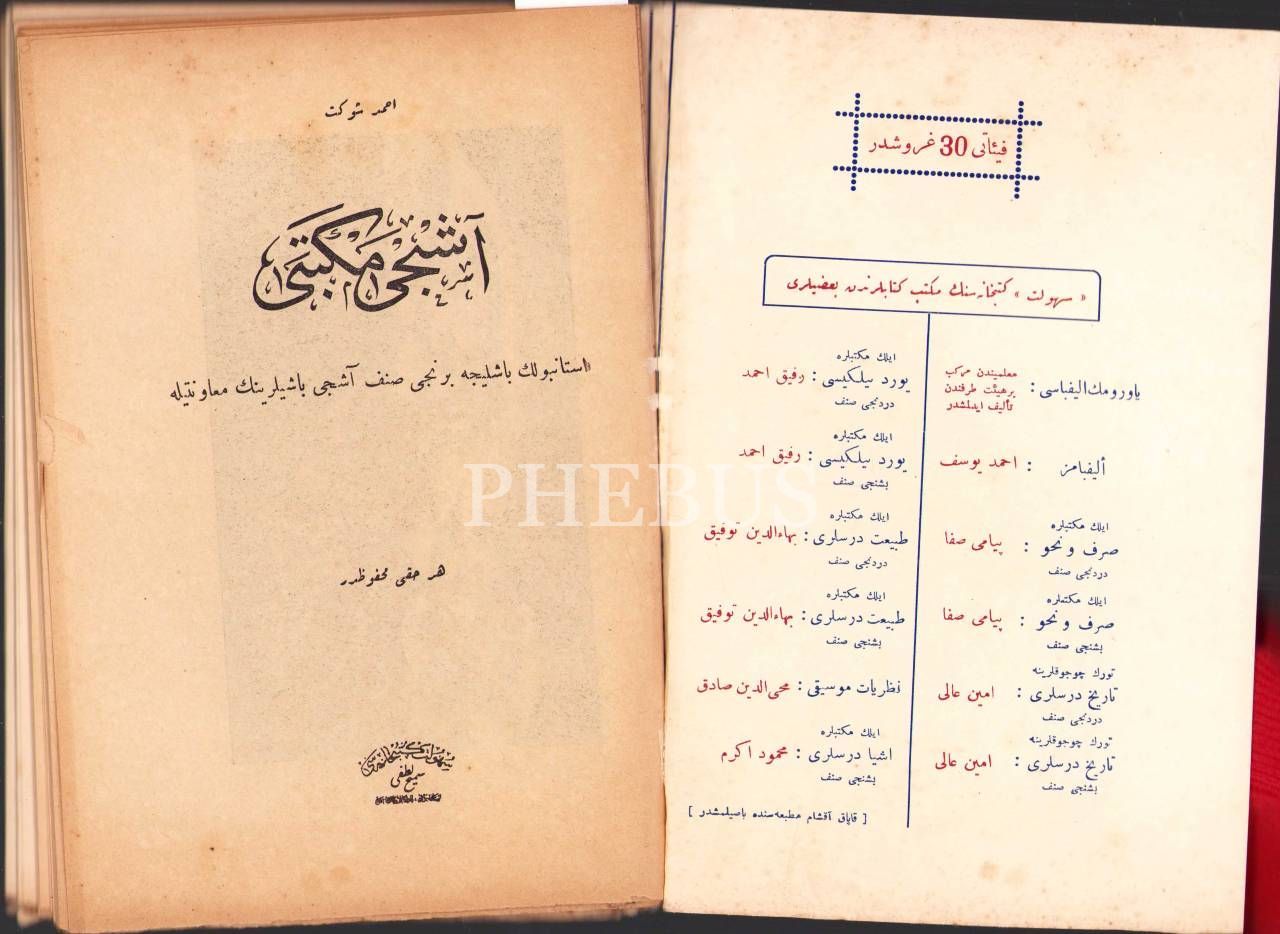 احمد شوكت
آشجی مكتبی
«استانبولك باشلیجه برنجی صنف آشجی باشیلرینك معاونتیله
هر حقی محفوظدر
سهولت كتبخانه‌سی
سمیح لطفی
PHEBUS
فیئاتی 30 غروشدر
« سهولت » كتبخانه‌سنك مكتب كتابلرندن بعضیلری
یاورومك الیفباسی : معلمیندن مركب
برهیئت طرفندن
تألیف ایدلمشدر
ألیفبامز : احمد یوسف
ایلك مكتبلره
صرف و نحو : پیامی صفا
دردنجی صنف
ایلك مكتبلره
صرف و نحو : پیامی صفا
بشنجی صنف
تورك چوجوقلرینه
تاریخ درسلری : امین عالی
دردنجی صنف
تورك چوجوقلرینه
تاریخ درسلری : امین عالی
بشنجی صنف
ایلك مكتبلره
یورد بیلكیسی : رفیق احمد
دردنجی صنف
ایلك مكتبلره
یورد بیلكیسی : رفیق احمد
بشنجی صنف
ایلك مكتبلره
طبیعت درسلری : بهاءالدین توفیق
دردنجی صنف
ایلك مكتبلره
طبیعت درسلری : بهاءالدین توفیق
بشنجی صنف
نظریات موسیقی : محی الدین صادق
ایلك مكتبلره
اشیا درسلری : محمود اكرم
بشنجی صنف
[ قاپاق آقشام مطبعه‌سنده باصیلمشدر ]